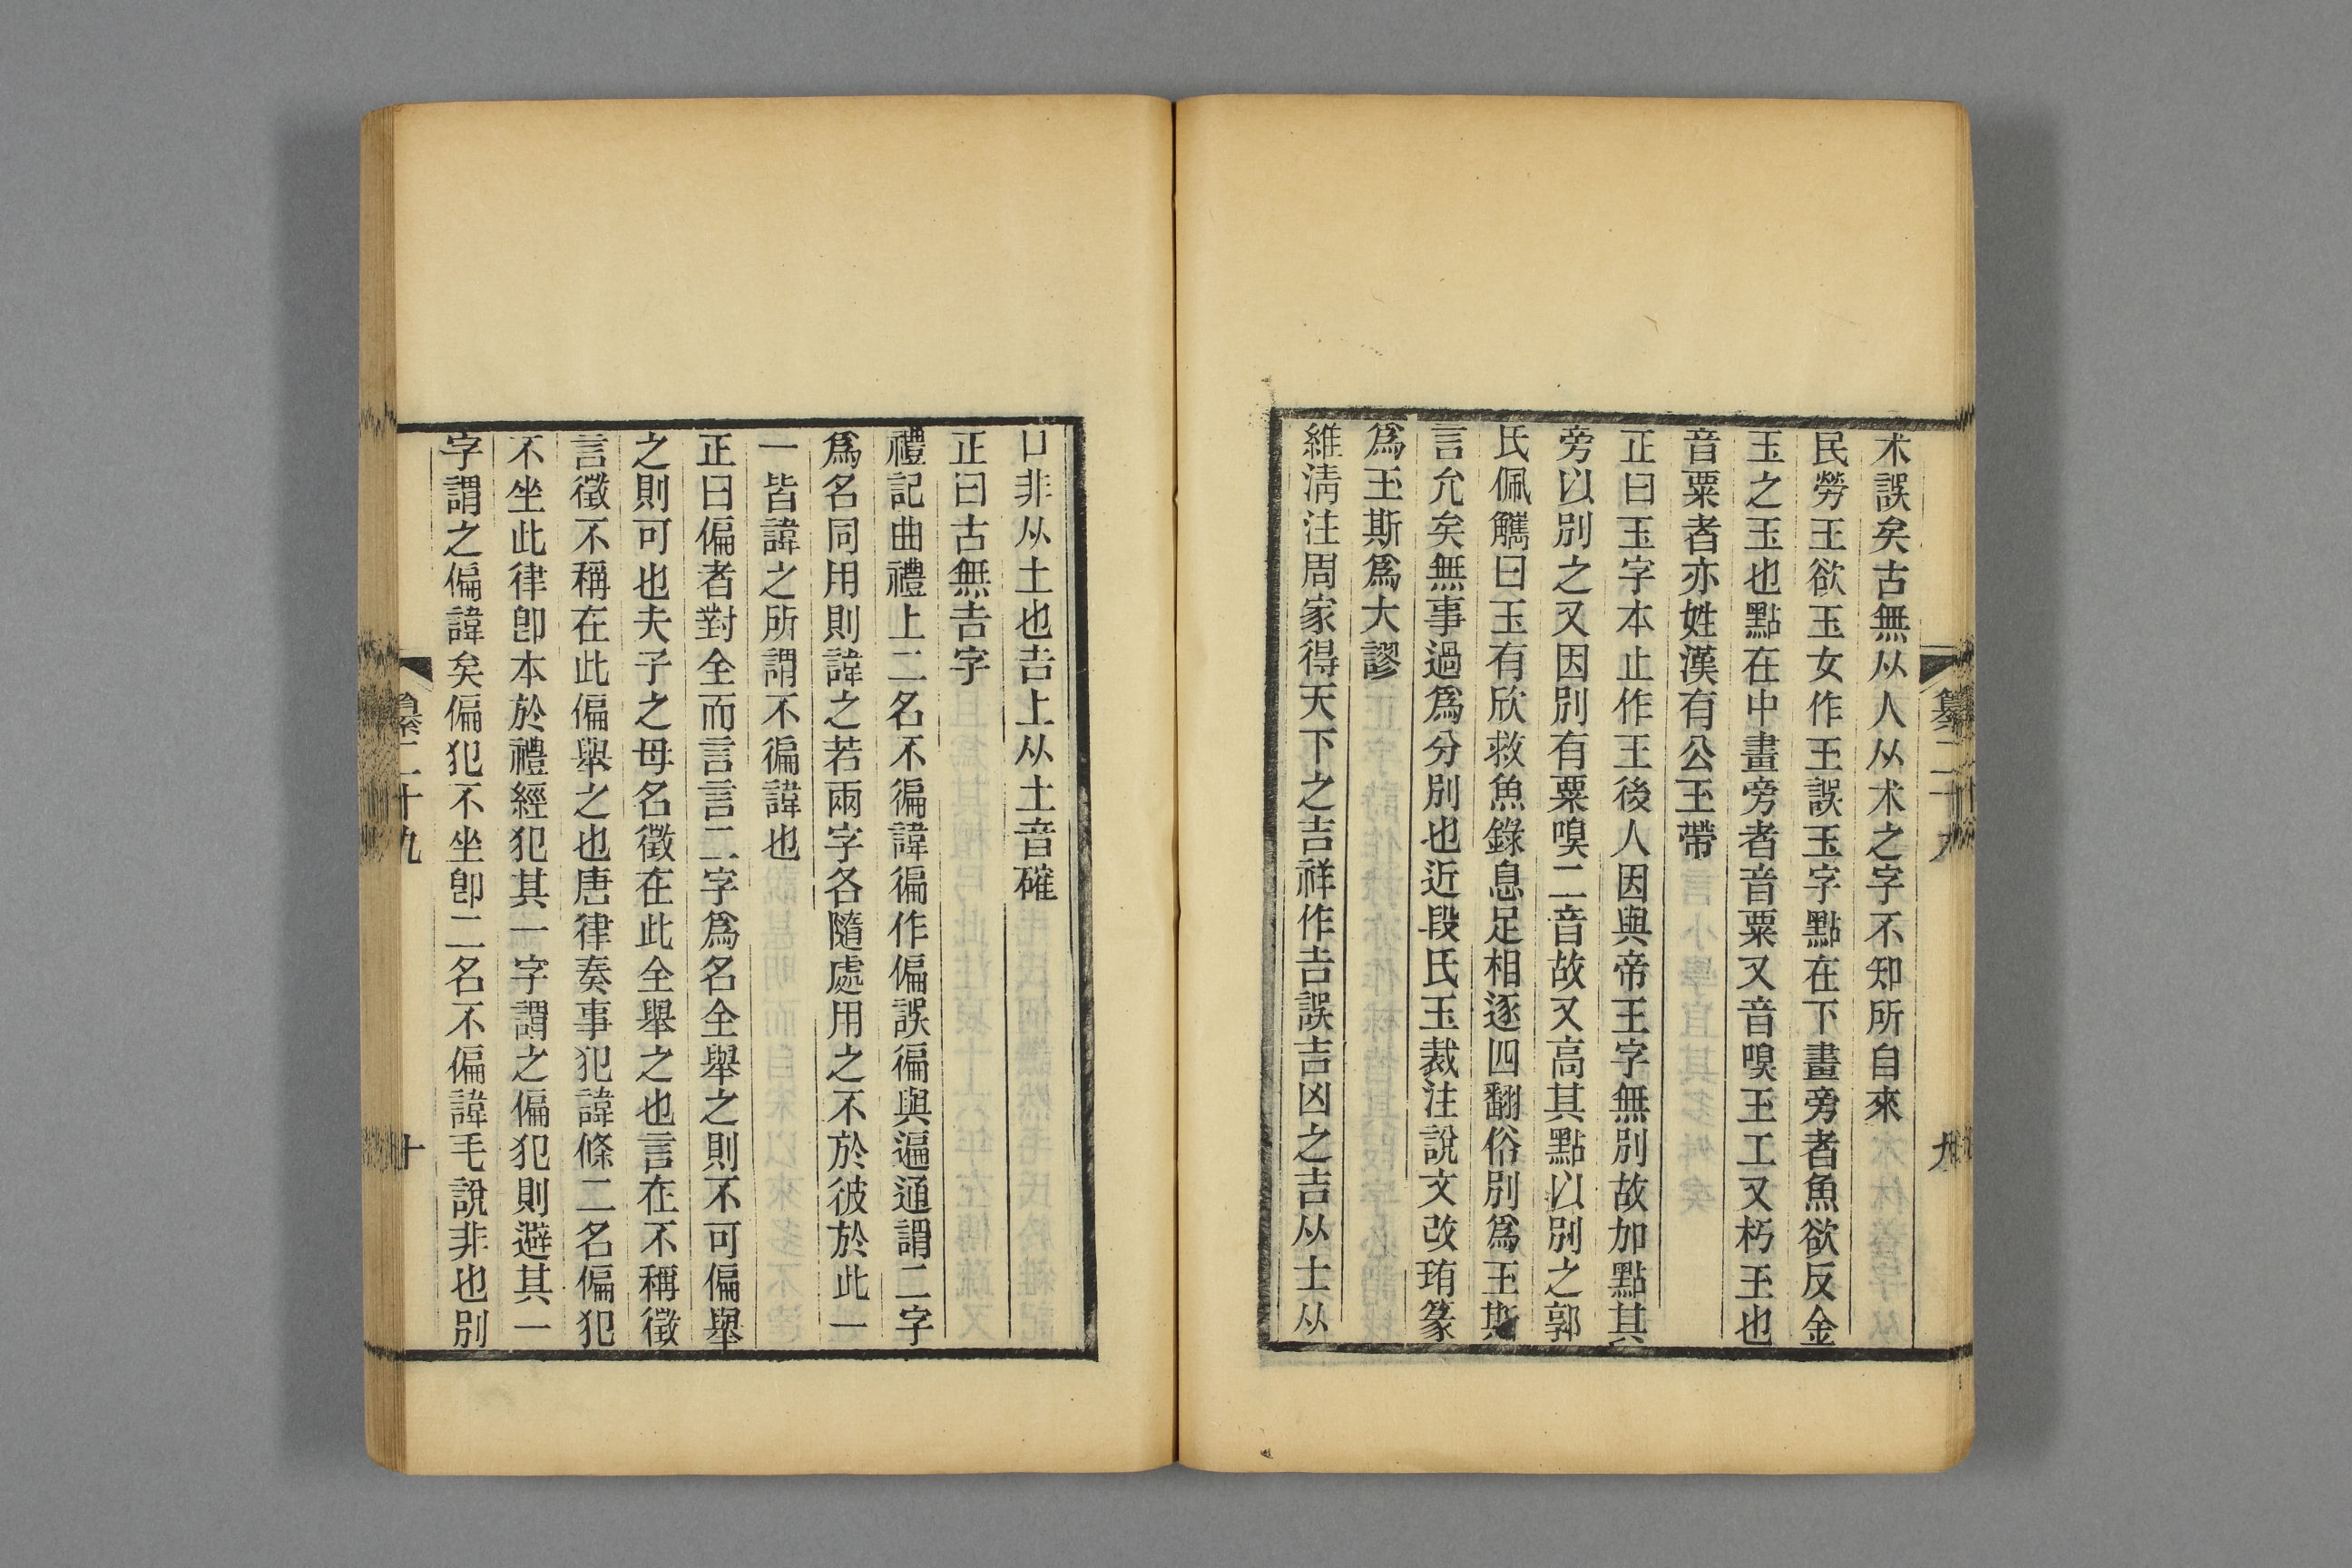 朮誤矣古無从人从朮之字不知所自來
民勞王欲玉女作王誤玉字點在下畫旁者魚欲反金
玉之玉也點在中畫旁者音粟又音嗅玊工又朽玊也
音粟者亦姓漢有公玊帶
正曰玉字本止作王後人因與帝王字無別故加點其
旁以別之又因別有粟嗅二音故又高其點以別之郭
氏佩觿曰玉有欣救魚錄息足相逐四翻俗別爲玊斯
言允矣無事過爲分別也近段氏玉裁注說文改珛篆
爲玊斯爲大謬
維淸注周家得天下之吉祥作吉誤吉凶之吉从士从
口非从土也吉上从土音確
正曰古無吉字
禮記曲禮上二名不徧諱徧作偏誤徧與遍通謂二字
爲名同用則諱之若兩字各隨處用之不於彼於此一
一皆諱之所謂不徧諱也
正曰偏者對全而言言二字爲名全舉之則不可偏舉
之則可也夫子之母名徵在此全舉之也言在不稱徵
言徵不稱在此偏舉之也唐律奏事犯諱條二名偏犯
不坐此律卽本於禮經犯其一字謂之偏犯則避其一
字謂之偏諱矣偏犯不坐卽二名不偏諱毛說非也別
纂二十九
十